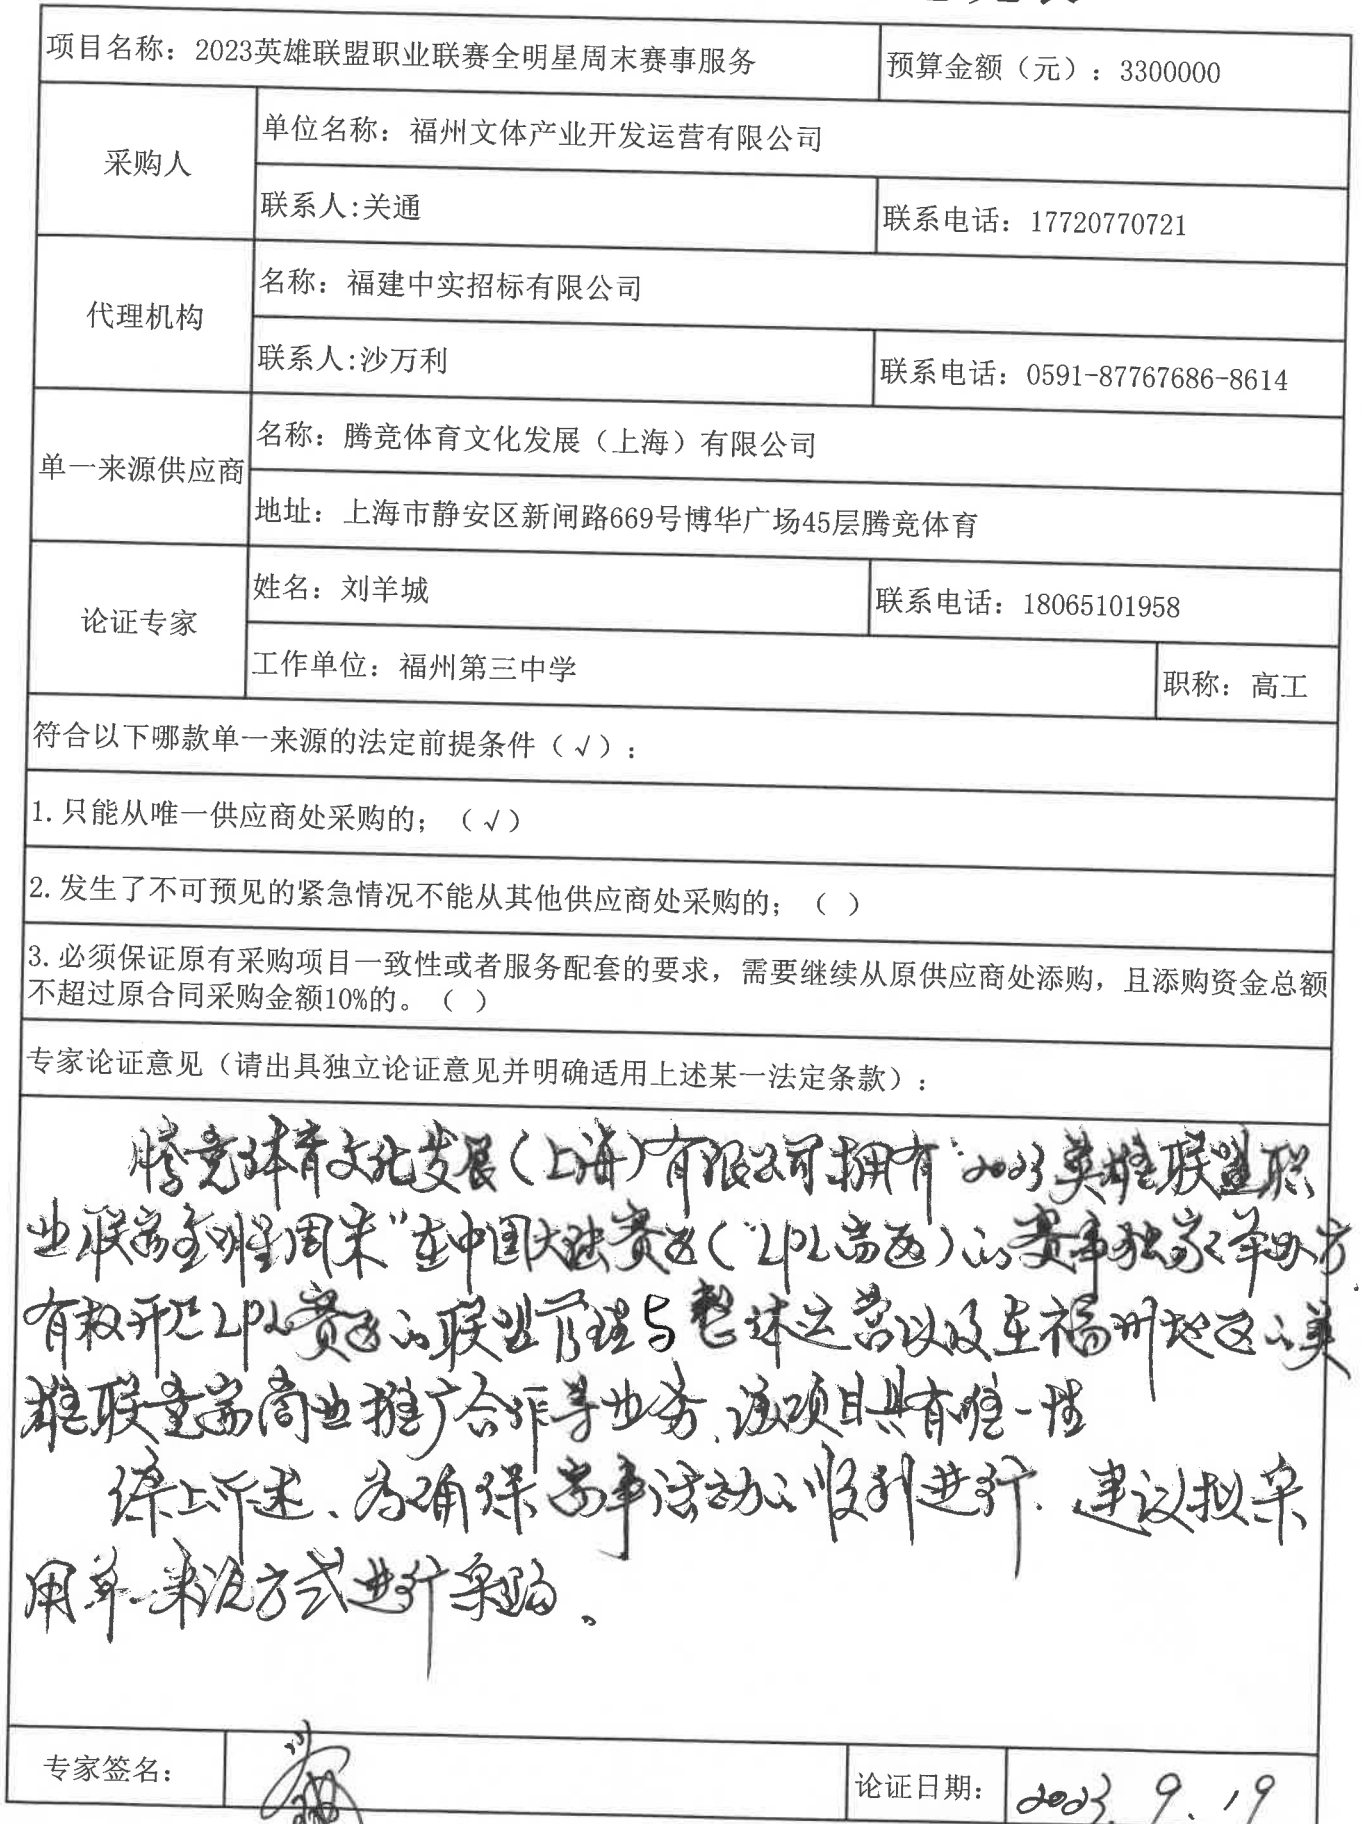 项目名称：2023英雄联盟职业联赛全明星周末赛事服务
预算金额（元）：3300000
采购人
单位名称：福州文体产业开发运营有限公司
联系人:关通
联系电话：17720770721
代理机构
名称：福建中实招标有限公司
联系人:沙万利
联系电话：0591-87767686-8614
单一来源供应商
名称：腾竞体育文化发展（上海）有限公司
地址：上海市静安区新闸路669号博华广场45层腾竞体育
论证专家
姓名：刘羊城
联系电话：18065101958
工作单位：福州第三中学
职称：高工
符合以下哪款单一来源的法定前提条件（√）：
1.只能从唯一供应商处采购的；（√）
2.发生了不可预见的紧急情况不能从其他供应商处采购的；（ ）
3.必须保证原有采购项目一致性或者服务配套的要求，需要继续从原供应商处添购，且添购资金总额
不超过原合同采购金额10%的。（ ）
专家论证意见（请出具独立论证意见并明确适用上述某一法定条款）：
腾竞体育文化发展（上海）有限公司拥有“2023英雄联盟职
业联赛全明星周末”在中国大陆赛区（“LPL赛区）的赛事独家举办方
有权开展LPL赛区的联盟管理与整体运营以及在福州地区的英
雄联盟端商业推广合作等业务，该项目具有唯一性
综上所述、为确保赛事活动的顺利进行．建议拟采
用单一来源方式进行采购。
专家签名：
论证日期：
2023.9.19